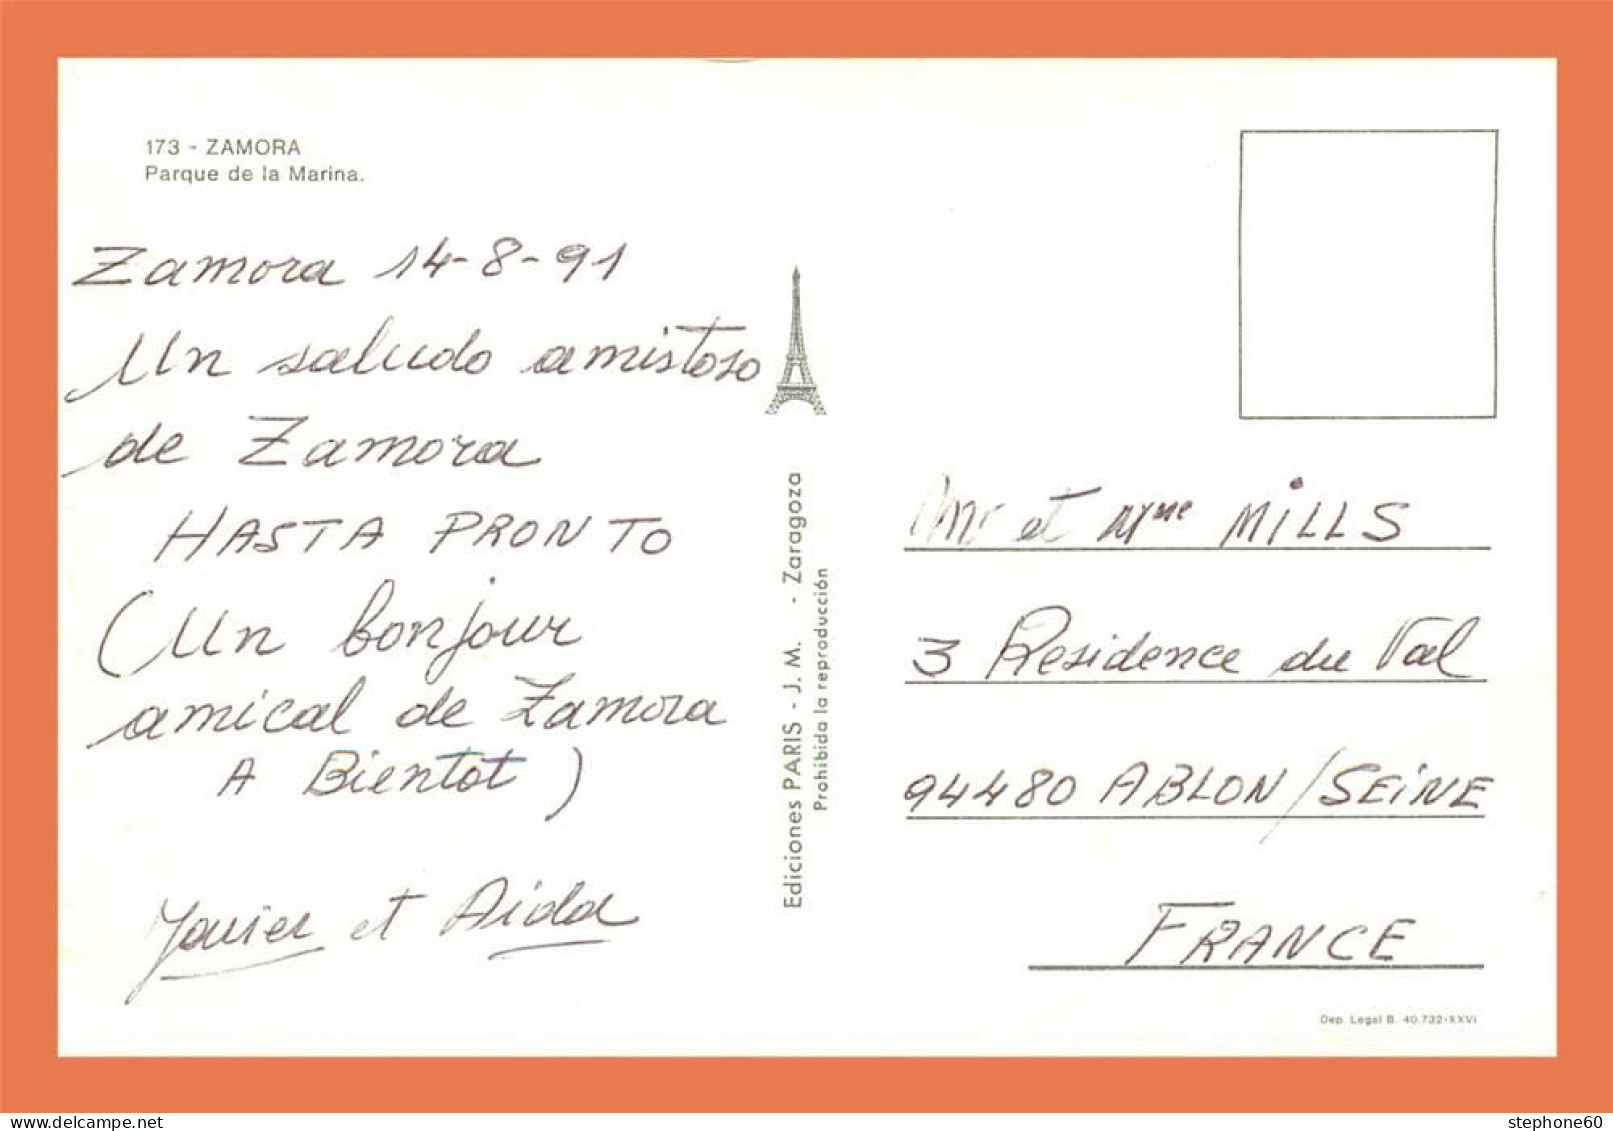 173 - ZAMORA
Parque de la Marina.
Zamora 14-8-91
Un saludo amistoso
de Zamora
HASTA PRONTO
(Un bonjour
amical de Zamora
A Bientot)
Javier et Aida
Ediciones PARIS - J. M. - Zaragoza
Prohibida la reproducción
Mr et Mme MiLLS
3 Residence du Val
94480 ABLON/SEiNE
FRANCE
Dep. Legal B. 40.732-XXVI
stephone60